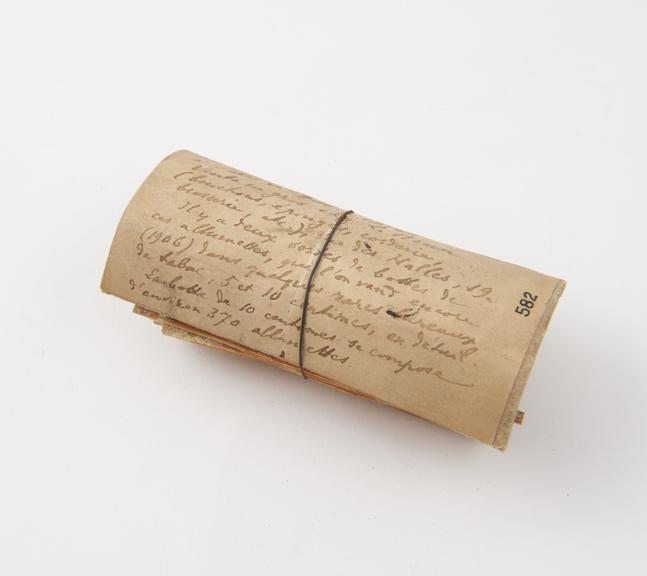 Vente en gros
(bouchons, éponges, corderie,
brosserie, etc. des Halles, 19.
Il y a deux sortes de bottes de
ces allumettes, que l'on vend encore
(1906) dans quelques rares bureaux
de tabac, 5 et 10 centimes, en détail.
La botte de 10 centimes se compose
d'environ 370 allumettes.
582